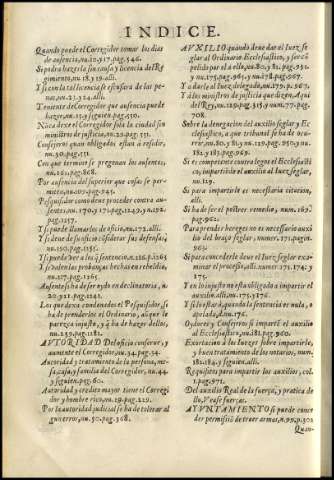 INDICE.
Quando puede el Corregidor tomar los dias
de ausencia, nu.20 y 317. pag.546.
Si podra hazerla sin causa y licencia del Re
gimiento, nu.18. y 19. alli.
Y si con la tal licencia se escusara de las pe-
nas, nu.23. y 24. alli.
Teniente de Corregidor que ausencia puede
hazer, nu.23. y siguien. pag.550.
No a de ser el Corregidor sola la ciudad sin
ministros de justicia, nu.29. pag.551.
Consejeros quan obligados estan a residir,
nu.50. pag.551
Con que termino se pregonan los ausentes,
nu.261. pag.868.
Por ausencia del superior que cosas se per-
miten,
Pesquisidor como deue proceder contra au-
sentes, nu.170. y 171. pag.1249. y nu.192.
pag.1257.
Y si puede llamarlos de oficio, nu.172. alli.
Y si deue de su oficio considerar sus defensas,
nu.150. pag.1151.
Y si puede ver a los q̃ sentenciò, n.226. p.1265
Y si valen las probanças hechas en rebeldia,
nu.127. pag.1265.
Ausente si ha de ser oydo en declinatoria, n.
20. y 21. pag.1241.
Los que dexa condenados el Pesquisidor, si
ha de prenderlos el Ordinario, aũque le
parezca injusto, y q̃ ha de hazer dellos,
nu.239. pag.1181.
AVTORIDAD Del oficio conserue, y
aumente el Corregidor, nu.34. pag.34.
Autoridad y tratamento de la persona, ca-
sa, y familia del Corregidor, nu.44
y siguien. pag.60.
Autoridad y credito mayor tiene el Corregi
dor y hombre rico, nu.19. pag.229.
Por la autoridad judicial se ha de tolerar al
gun error, nu.50. pag.368.
AVXILIO quando deue dar el Iuez se-
glar al Ordinario Ecclesiastico, y sera cõ
pelido por el a ello, nu.80. y 81. pag.951.
y nu.175. pag.965. y nu.178. pag.967.
Y a darle al Iuez delegado, nu.177. pag.967.
Y a dos ministros de justicia que deguo, Aqui
del Rey, nu.129. pag.315. y num.77. pag.
708.
Sobre la denegacion del auxilio seglar y Ec
clesiastico, a que tribunal se ha de ocur-
rir, nu.80. y 81. y nu.129. pag.950. y nu.
182. y 183. pag.969.
Si es competente contra legos el Ecclesiasti
co, impartido el auxilio al Iuez seglar,
nu.119.
Si para impartirle es necessaria citacion,
alli.
Si ha de ser el postrer remedio, num.169.
pag.962.
Para prender hereges no es necessario auxi
lio del braço seglar, numer.171. pagin.
963.
Si para concederle deue el Iuez seglar exa-
minar el processo, num.173. pag.964. y
nu.174. y siguien. alli.
Y en lo injusto no està obligado a impartir el
auxilio alli, nu.175. y 176.
Y si se escusarà, quando la sentencia es nula, o
apelada, du.170. alli.
Oydores y Consejeros si impartẽ el auxilio
al Ecclesiastico, nu.181. pag.960.
Exortacion a los Iuezes sobre impartirle,
y buen tratamiento de los notarios, num.
182. 184. y siguien. alli.
Requisitos para impartir los auxilios, col.
1. pag.971.
Del auxilio Real de la fuerça, y pratica de
llo, Vease fuerça.
AYVNTAMIENTO si puede conce
der permissiõ de traer armas, n.99. p.302
Quan-